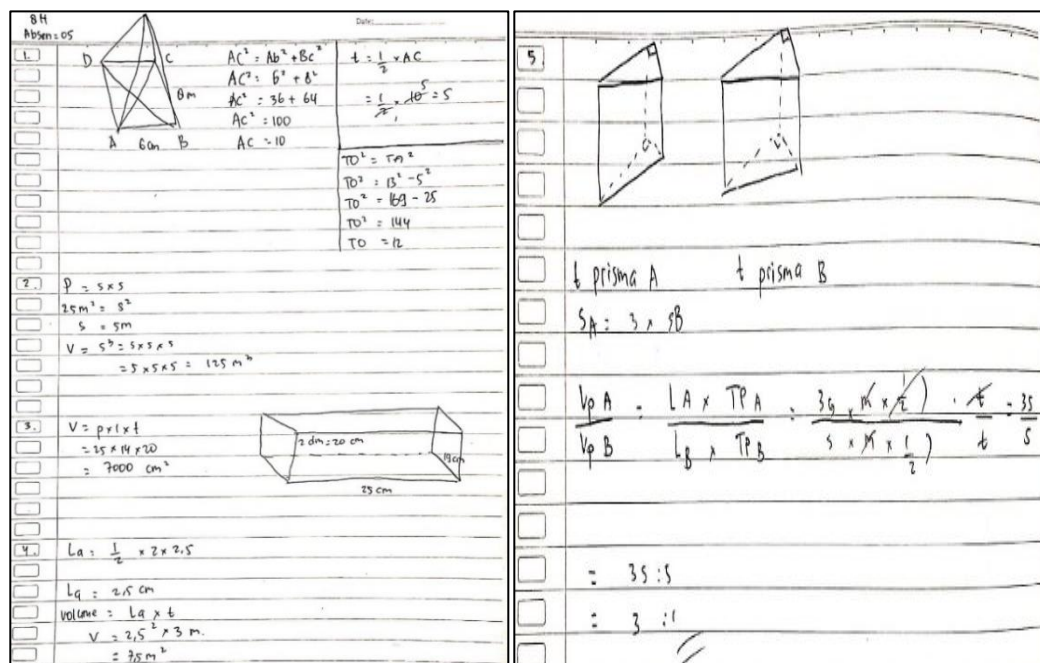 8H
Absen = 05
Date:
1.
D
C
8m
A
6cm
B
AC² = Ab² + Bc²
AC² = 6² + 8²
AC² = 36 + 64
AC² = 100
AC = 10
t = 1/2 × AC
= 1/2 × 10 5 = 5
1
TO² = TA²
TO² = 13² - 5²
TO² = 169 - 25
TO² = 144
TO = 12
2.
P = s × s
25m² = s²
s = 5m
V = s³ = s × s × s
= 5 × 5 × 5 = 125 m³
3.
V = p × l × t
= 25 × 14 × 20
= 7000 cm²
2 dm = 20 cm
25 cm
4.
La = 1/2 × 2 × 2.5
La = 2,5 cm
Volume = La × t
V = 2,5² × 3 m.
= 7,5 m²
5
t prisma A t prisma B
SA = 3 × SB
Vp A / Vp B = LA × TP A / LB × TP B = 3s × m × 1/2) / s × m × 1/2) · t / t = 3s / s
= 3s : s
= 3 : 1